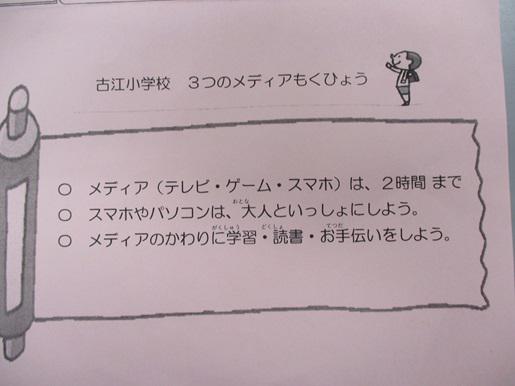 古江小学校 3つのメディアもくひょう
○ メディア（テレビ・ゲーム・スマホ）は、2時間 まで
○ スマホやパソコンは、大人といっしょにしよう。
○ メディアのかわりに学習・読書・お手伝いをしよう。